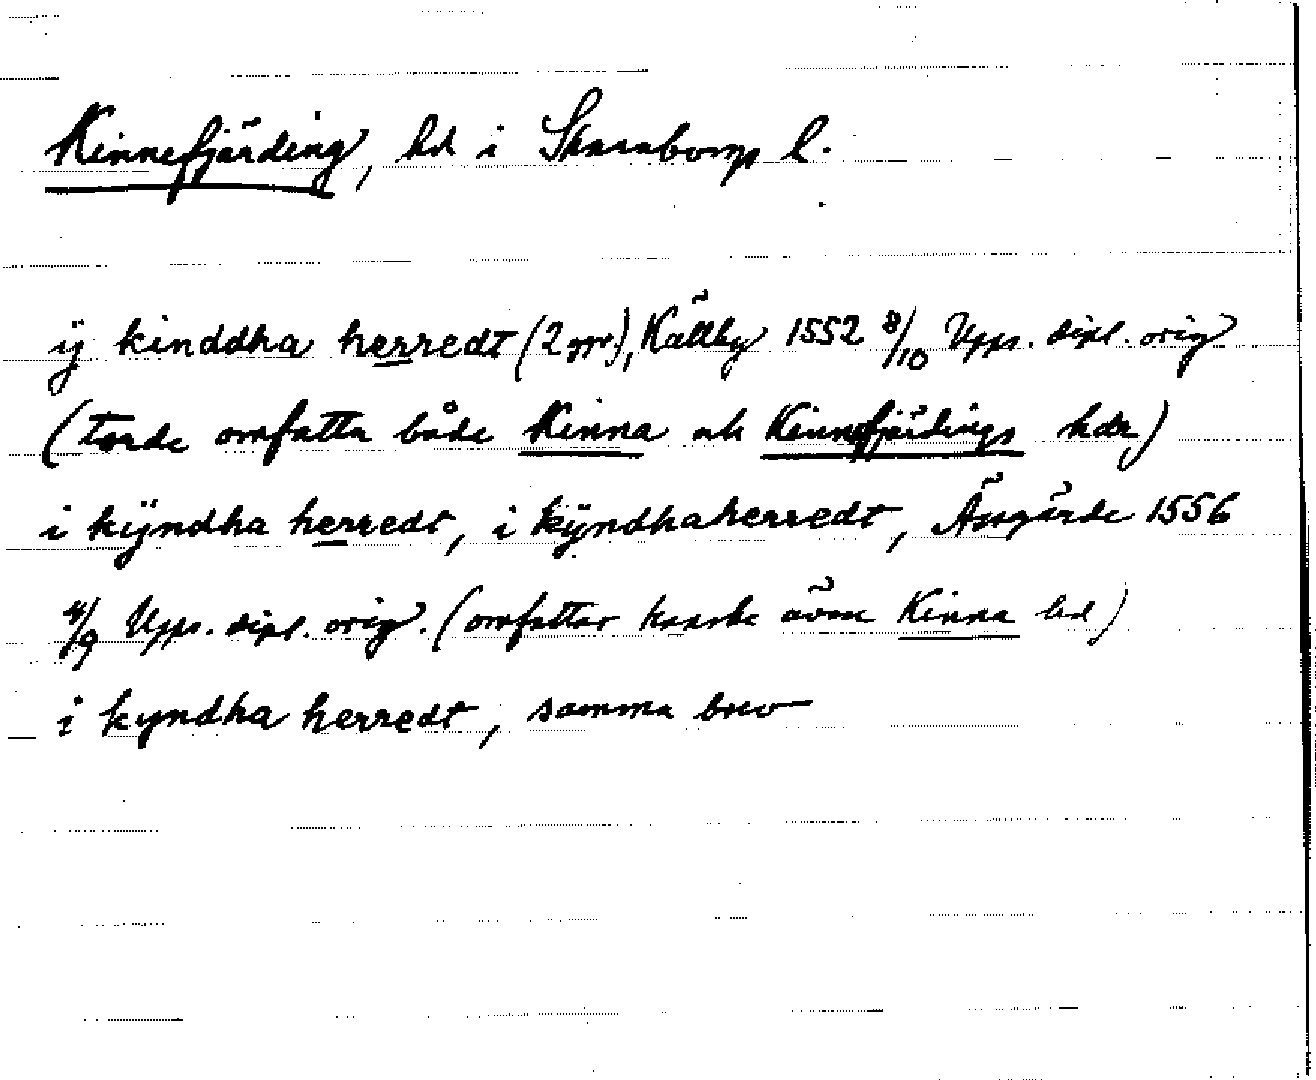 Kinnefjärding, hd i Skaraborgs l.
ÿ kinddha herredt (2 ggr), Källby 1552 8/10 Upps. dipl. orig
(torde omfatta både Kinna och Kinnefjärdings hdr)
i kÿndha herredt, i kÿndhaherredt, Åsgärde 1556
4/9 Upps. dipl. orig. (omfattar kanske även Kinna hd)
i kyndha herredt, samma brev